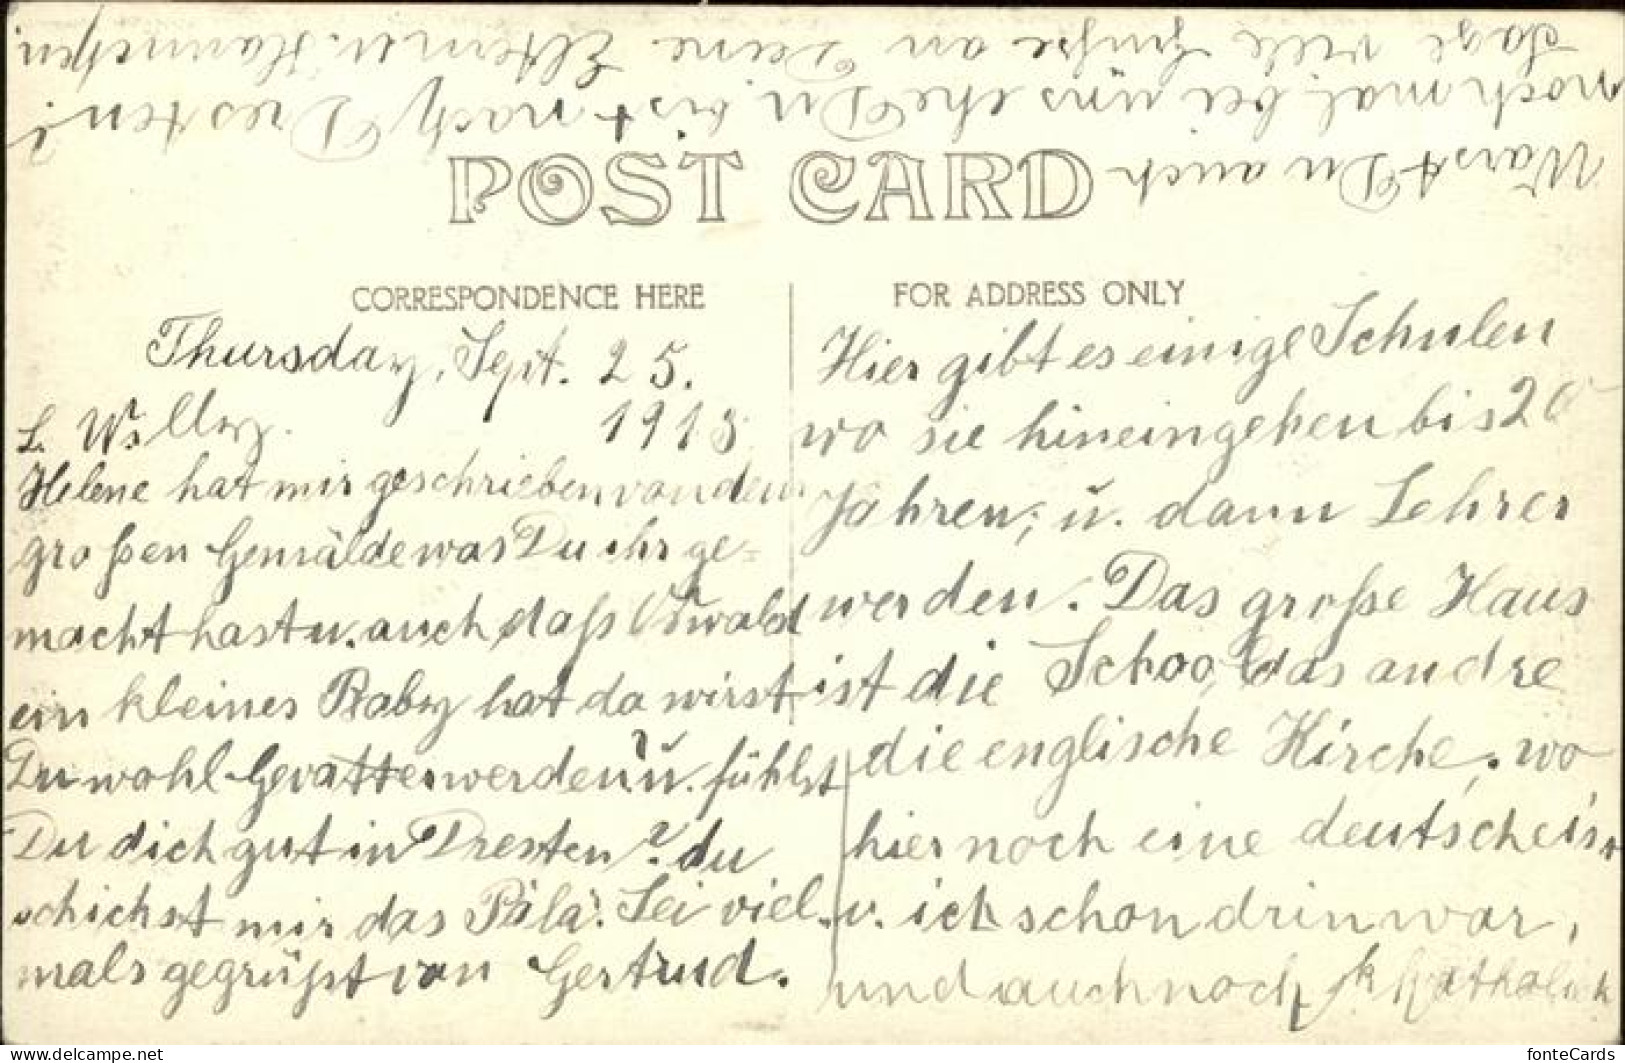 Sage viele Grüße an Deine Eltern u. Hannchen.
noch mal bei uns ehe Du bist nach Dresten?
Warst Du auch
POST CARD
CORRESPONDENCE HERE
FOR ADDRESS ONLY
Thursday, Sept. 25.
1913
L. Willy.
Helene hat mir geschrieben von dem
großen Gemälde was Du ihr ge=
macht hast u. auch daß Oswald
ein kleines Baby hat da wirst
Du wohl Gevatter werden? u. fühlst
Du dich gut in Dresten? du
schickst mir das Bild. Sei viel=
mals gegrüßt von Gertrud.
Hier gibt es einige Schulen
wo sie hineingehen bis 20
Jahren, u. dann Lehrer
werden. Das große Haus
ist die School, das andre
die englische Kirche, wo
hier noch eine deutsche is,
u. ich schon drin war,
und auch noch
fonteCards